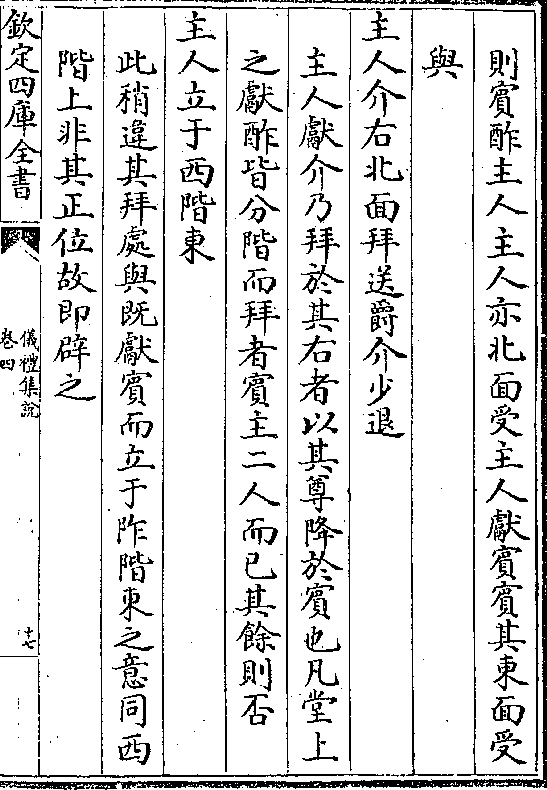 則賓酢主人主人亦北面受主人獻賓賓其東面受
與
主人介右北面拜送爵介少退
主人獻介乃拜於其右者以其尊降於賓也凡堂上
之獻酢皆分階而拜者賓主二人而已其餘則否
主人立于西階東
此稍違其拜處與既獻賓而立于阼階東之意同西
階上非其正位故即辟之
欽定四庫全書
儀禮集說
卷四
十七